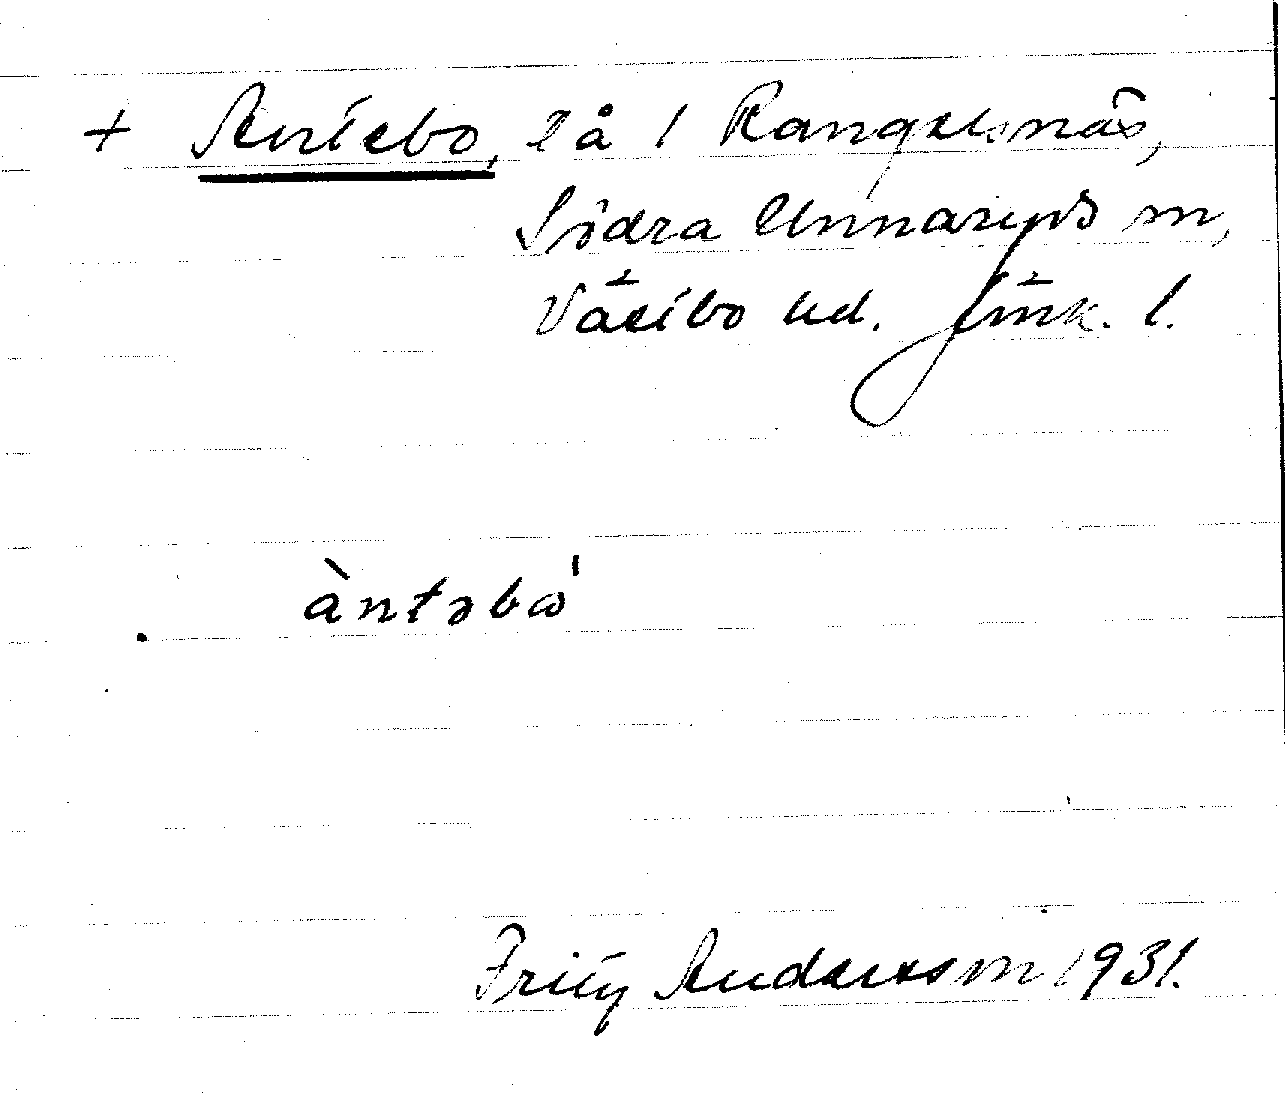 + Antebo, lå i Rangelsnäs,
Södra Unnaryds sn,
Västbo hd. Jönk. l.
àntəbω'
Fritz Andersson 1931.